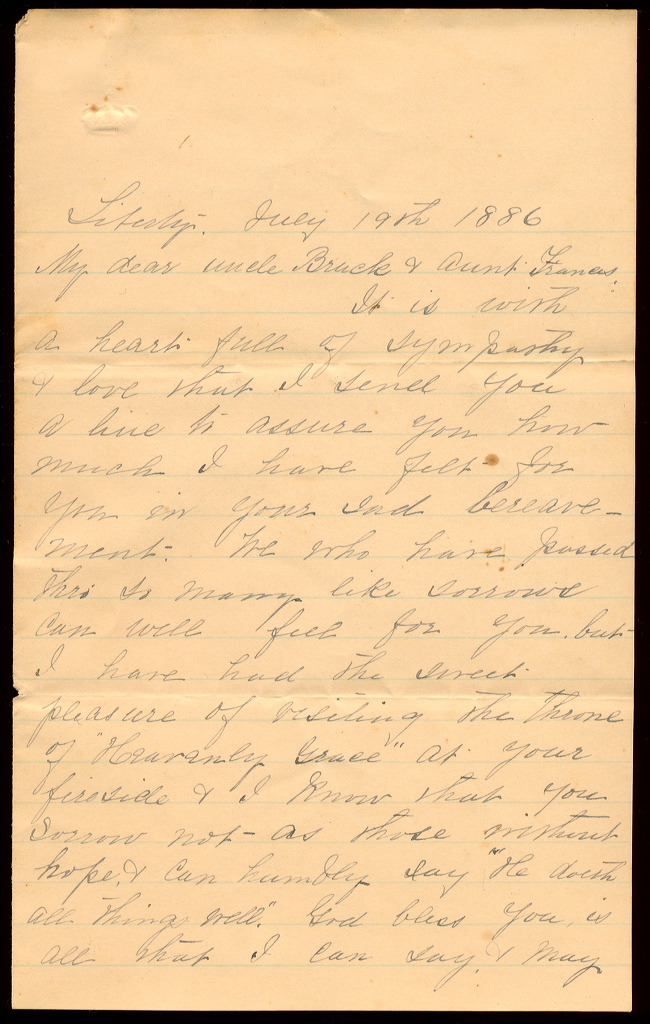 Liberty. July 19th 1886
My dear uncle Brack & Aunt Frances.
It is with
a heart full of sympathy
& love that I send you
a line to assure you how
much I have felt for
you in your sad bereave-
ment. We who have passed
thro so many like sorrows
can well feel for you. but
I have had the sweet
pleasure of visiting the Throne
of "Heavenly Grace" at your
fireside & I know that you
sorrow not as those without
hope, & can humbly say "He doeth
all things well". God bless you, is
all that I can say, & may